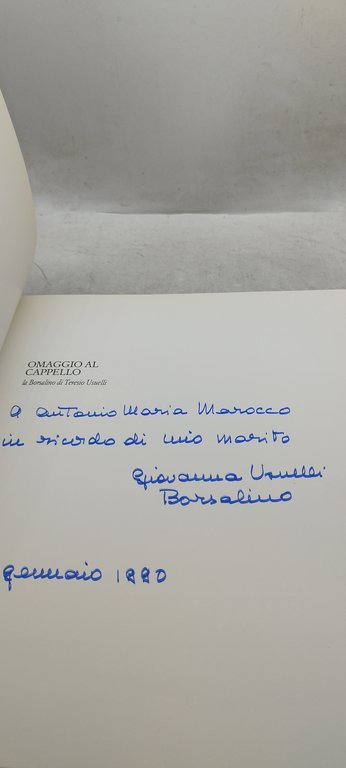 OMAGGIO AL
CAPPELLO
la Borsalino di Teresio Usuelli
A Antonio Maria Marocco
in ricordo di mio marito
Giovanna Usuelli
Borsalino
gennaio 1990